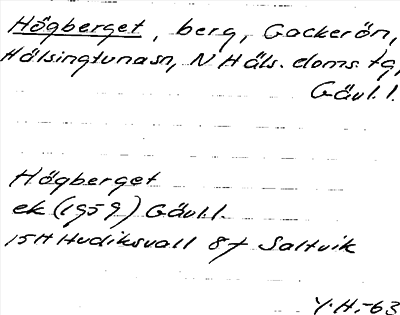 Högberget, berg, Gackerön,
Hälsingtunasn, N Häls. doms. tg,
Gävl. l.
Högberget
ek (1959) Gävl.l.
15H Hudiksvall 8f Saltvik
Y.H.-63